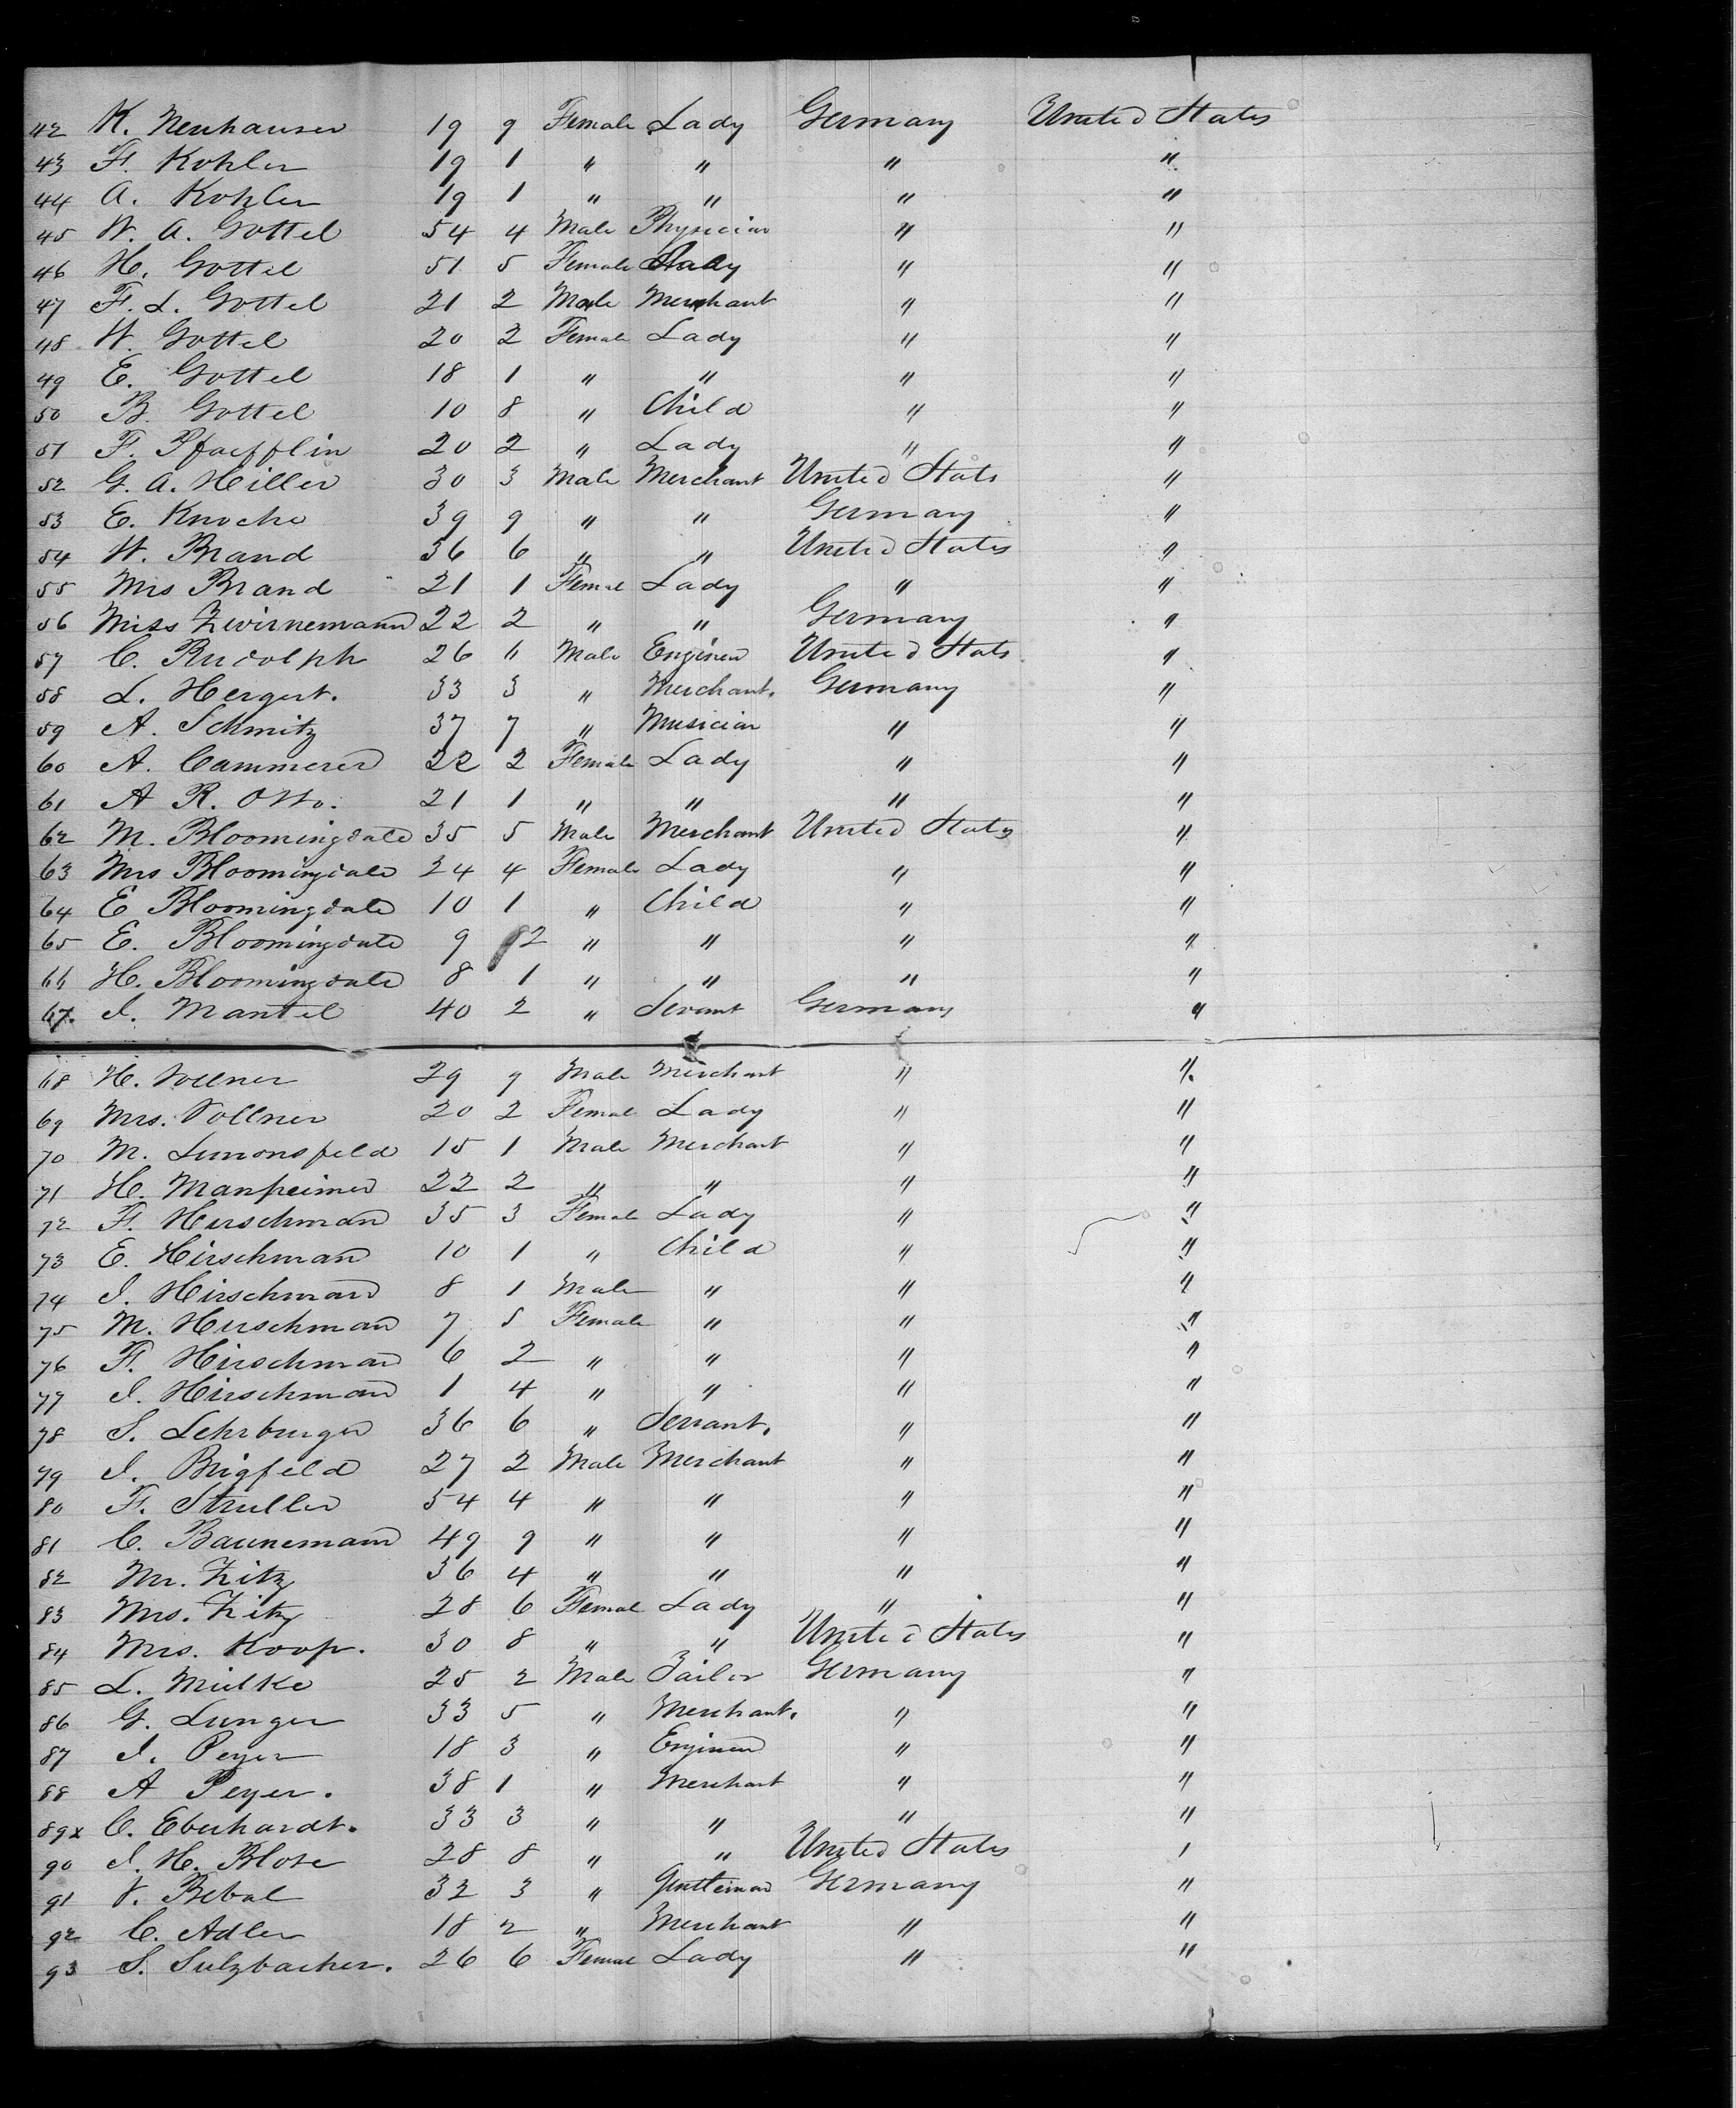 42 K. Neuhauser 19 9 Female Lady Germany United States
43 F. Kohler 19 1 " " " "
44 A. Kohler 19 1 " " " "
45 W. A. Gottel 54 4 Male Physician " "
46 H. Gottel 51 5 Female Lady " "
47 F. L. Gottel 21 2 Male Merchant " "
48 W. Gottel 20 2 Female Lady " "
49 E. Gottel 18 1 " " " "
50 B. Gottel 10 8 " Child " "
51 F. Pfaefflin 20 2 " Lady " "
52 G. A. Hiller 30 3 Male Merchant United Stats "
53 E. Knoche 39 9 " " Germany "
54 W. Brand 36 6 " " United States "
55 Mrs Brand 21 1 Female Lady " "
56 Miss Zwirnemann 22 2 " " Germany "
57 C. Rudolph 26 " Male Engineer United Stats "
58 L. Hergert. 33 3 " Merchant. Germany "
59 A. Schmitz 37 7 " Musician " "
60 A. Cammerer 22 2 Female Lady " "
61 A R. Otto. 21 1 " " " "
62 M. Bloomingdale 35 5 Male Merchant United States "
63 Mrs Bloomingdale 24 4 Female Lady " "
64 E Bloomingdale 10 1 " Child " "
65 E. Bloomingdale 9 2 " " " "
66 H. Bloomingdale 8 1 " " " "
67. J. Mantel 40 2 " Servant Germany "
68 H. Vollner 29 9 Male Merchant " "
69 Mrs. Vollner 20 2 Female Lady " "
70 M. Simonsfeld 15 1 Male Merchant " "
71 H. Manheimer 22 2 " " " "
72 F. Hirschman 35 3 Female Lady " "
73 E. Hirschman 10 1 " Child " "
74 J. Hirschman 8 1 Male " " "
75 M. Hirschman 7 5 Female " " "
76 F. Hirschman 6 2 " " " "
77 J. Hirschman 1 4 " " " "
78 S. Lehrburger 36 6 " Servant. " "
79 J. Brigfeld 27 2 Male Merchant " "
80 F. Struller 54 4 " " " "
81 C. Baunemann 49 9 " " " "
82 Mr. Zitz 36 4 " " " "
83 Mrs. Zitz 28 6 Female Lady " "
84 Mrs. Koop. 30 8 " " United States "
85 L. Mielke 25 2 Male Tailor Germany "
86 G. Lunger 33 5 " Merchant. " "
87 J. Peyer 18 3 " Engineer " "
88 A Peyer. 38 1 " Merchant " "
89x C. Eberhardt. 33 3 " " " "
90 J. H. Blose 28 8 " " United States "
91 V. Bebal 32 3 " Gentleman Germany "
92 C. Adler 18 2 " Merchant " "
93 S. Sulzbacher. 26 6 Female Lady " "